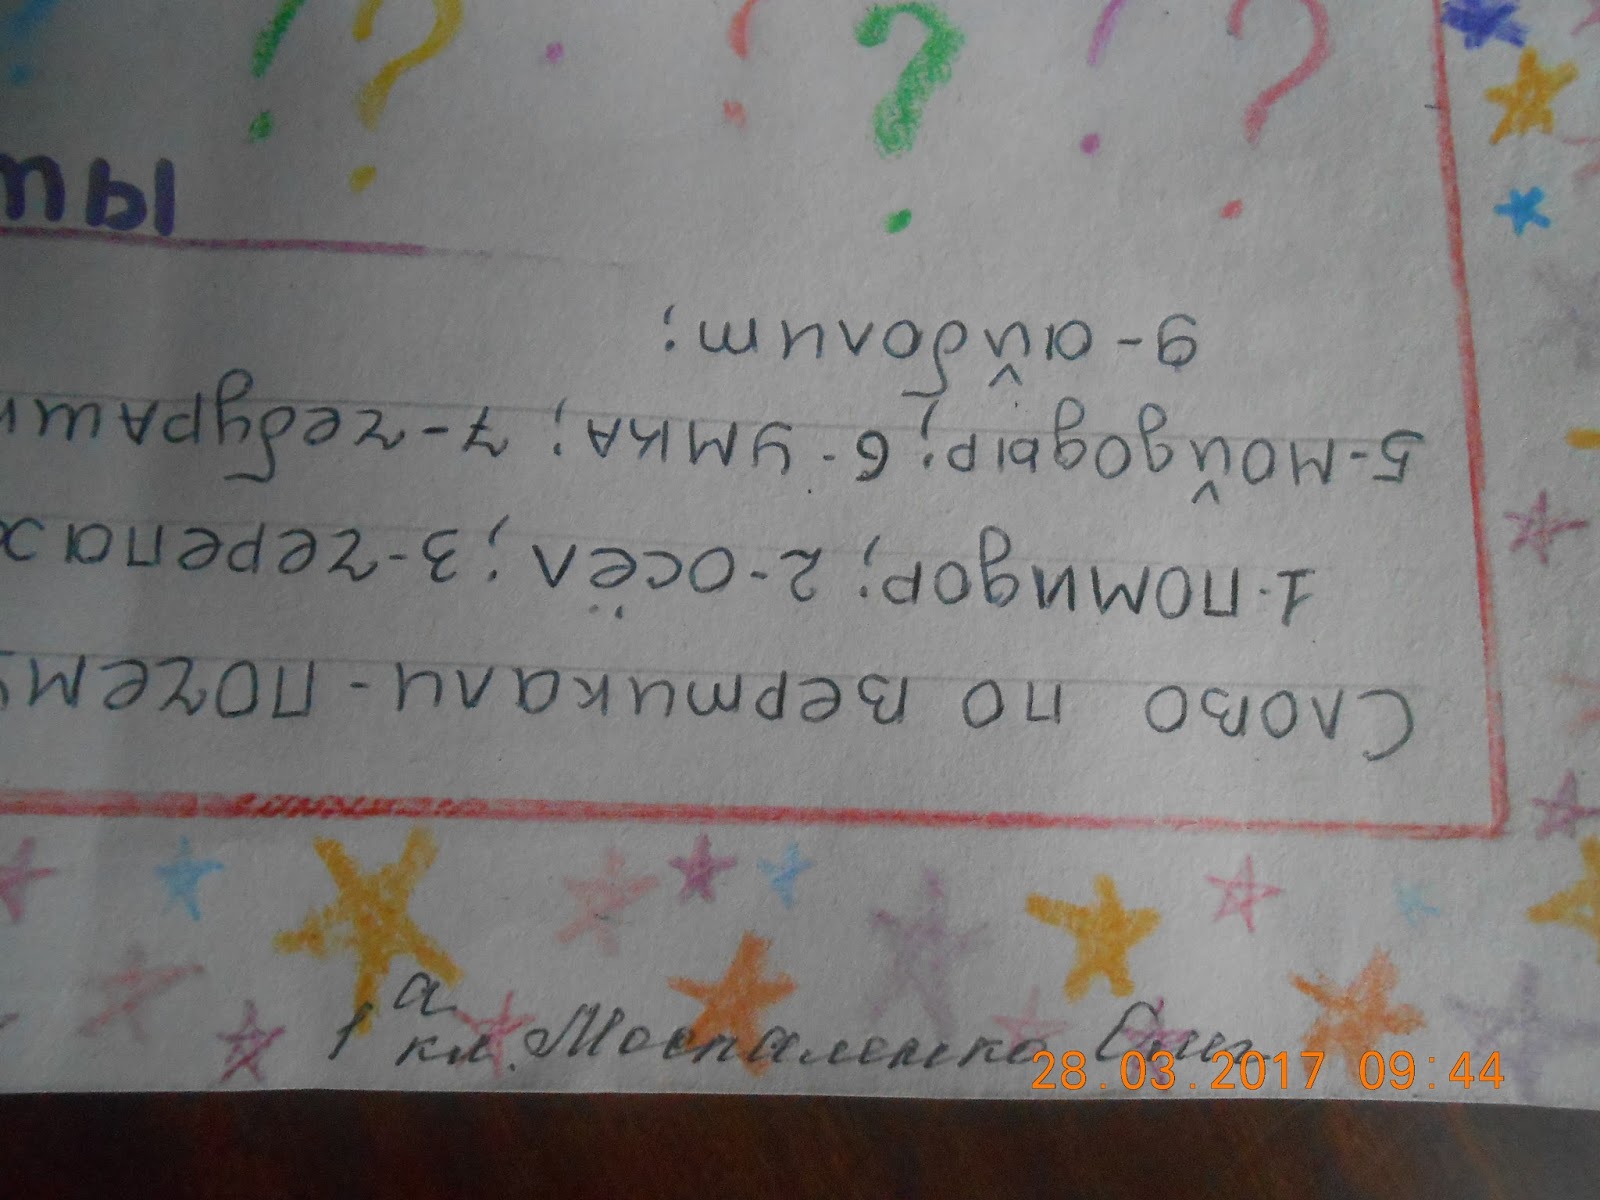 ты
Слово по вертикали - почему
1-помидор; 2-осёл; 3-черепах
5-мойдодыр; 6-умка; 7-чебурашк
9-айболит;
1 а кл. Москаленко Олег
28.03.2017 09:44